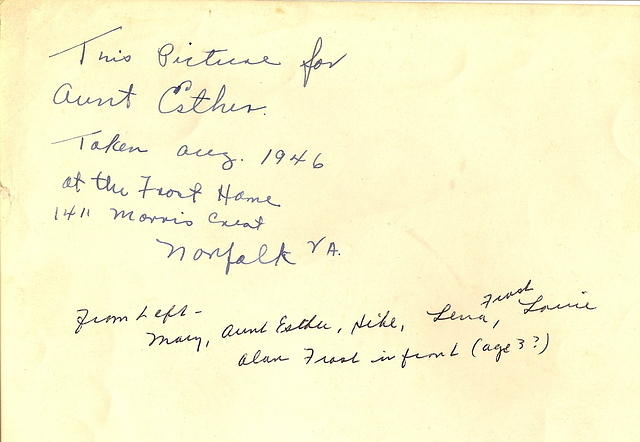 This Picture for
Aunt Esther.
Taken Aug. 1946
at the Frost Home
1411 Morris Crest
Norfolk VA.
From Left -
Frost
Mary, Aunt Esther, Lena, Louie
Alan Frost in front (age 3?)